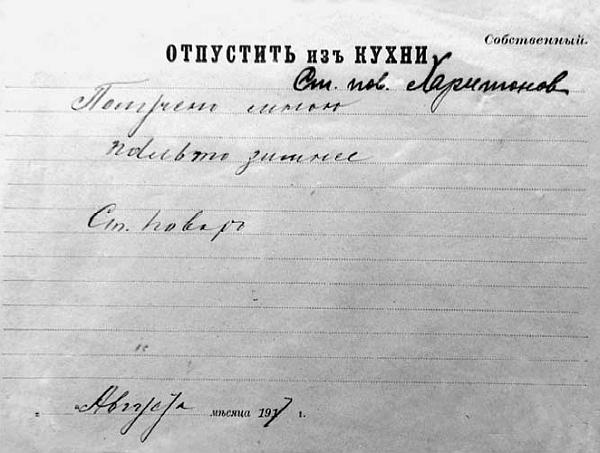 Собственный.
ОТПУСТИТЬ изъ КУХНИ
Ст. пов. Харитонов
Получено мною
пальто зимнее
Ст. повар
„
„ Августа мѣсяца 1917 г.